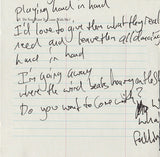 playing hand in hand
I'd love to give them what they really
need and leave them all dancing
hand in hand
I'm going away
where the wind beats
Do you want to come with?
India